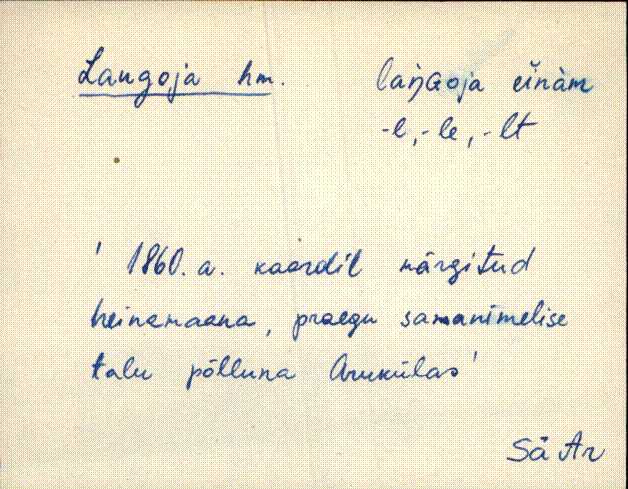 Langoja hm. laŋGoja eìnàm
-l, -le, -lt
' 1860. a. kaardil märgitud
heinamaana, praegu samanimelise
talu põlluna Arukülas'
Sä Ar